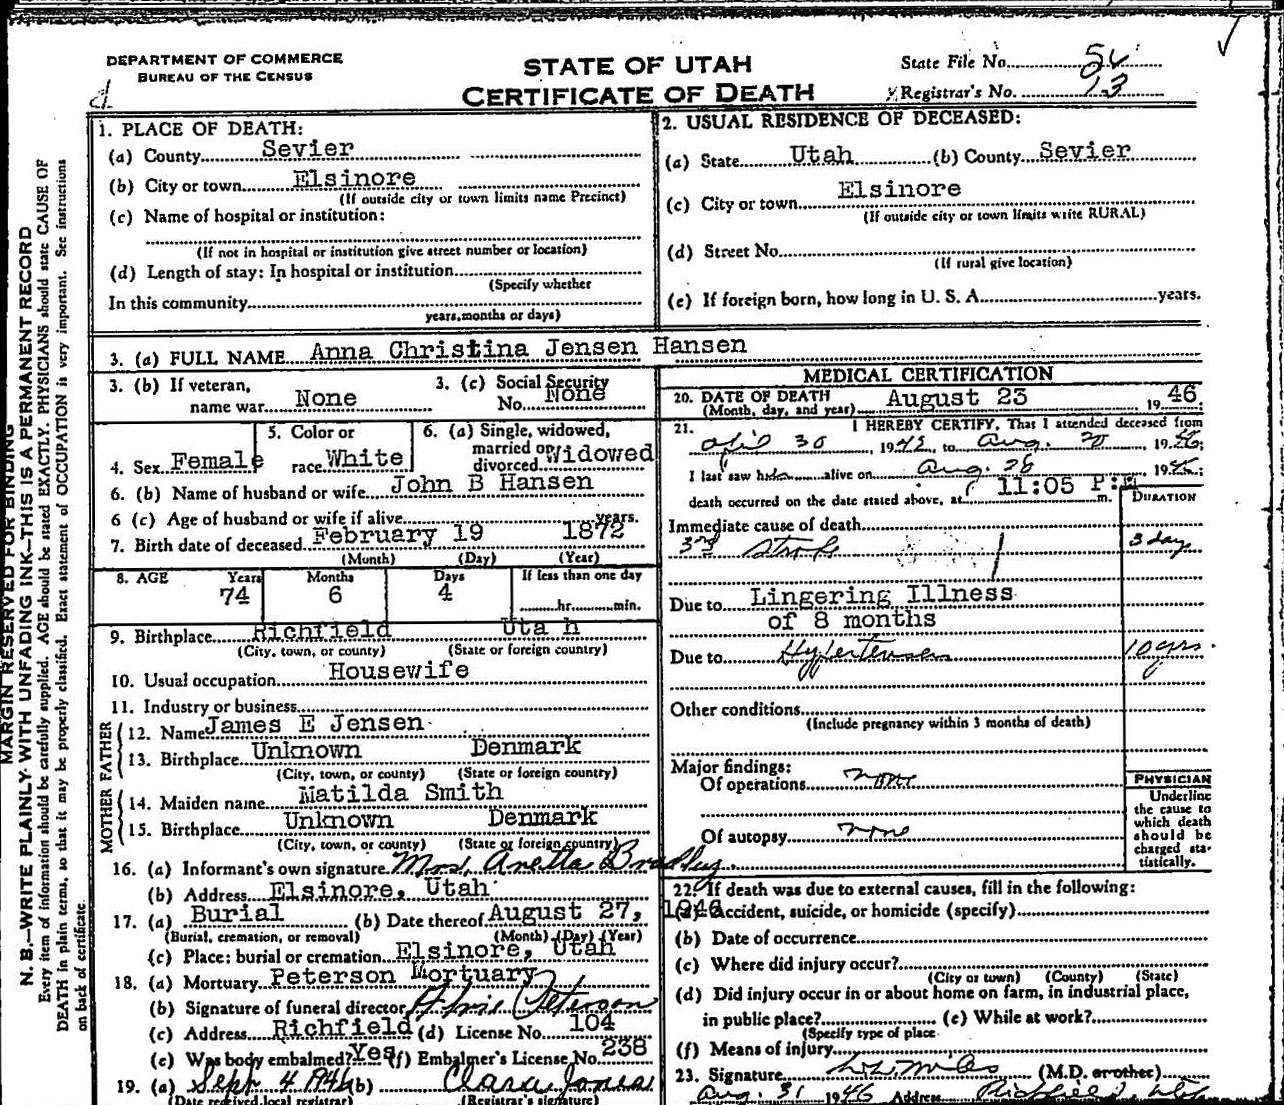 DEPARTMENT OF COMMERCE
BUREAU OF THE CENSUS
STATE OF UTAH
CERTIFICATE OF DEATH
State File No. 
Registrar's No. 13
MARGIN RESERVED FOR BINDING
N. B.—WRITE PLAINLY WITH UNFADING INK—THIS IS A PERMANENT RECORD
Every item of information should be carefully supplied. AGE should be stated EXACTLY. PHYSICIANS should state CAUSE OF
DEATH in plain terms, so that it may be properly classified. Exact statement of OCCUPATION is very important. See instructions
on back of certificate.
1. PLACE OF DEATH:
(a) County Sevier
(b) City or town Elsinore
(If outside city or town limits name Precinct)
(c) Name of hospital or institution:
(If not in hospital or institution give street number or location)
(d) Length of stay: In hospital or institution
(Specify whether
In this community
years, months or days)
2. USUAL RESIDENCE OF DECEASED:
(a) State Utah (b) County Sevier
(c) City or town Elsinore
(If outside city or town limits write RURAL)
(d) Street No.
(If rural give location)
(e) If foreign born, how long in U. S. A. years.
3. (a) FULL NAME Anna Christina Jensen Hansen
3. (b) If veteran, name war None
3. (c) Social Security No. None
4. Sex Female
5. Color or race White
6. (a) Single, widowed, married or divorced Widowed
6. (b) Name of husband or wife John B Hansen
6 (c) Age of husband or wife if alive years.
7. Birth date of deceased February 19 1872
(Month) (Day) (Year)
8. AGE Years Months Days If less than one day
74 6 4 hr. min.
9. Birthplace Richfield Utah
(City, town, or county) (State or foreign country)
10. Usual occupation Housewife
11. Industry or business
FATHER
12. Name James E Jensen
13. Birthplace Unknown Denmark
(City, town, or county) (State or foreign country)
MOTHER
14. Maiden name Matilda Smith
15. Birthplace Unknown Denmark
(City, town, or county) (State or foreign country)
16. (a) Informant's own signature Mrs. Anetta Bradley
(b) Address Elsinore, Utah
17. (a) Burial (b) Date thereof August 27, 1946
(Burial, cremation, or removal) (Month) (Day) (Year)
(c) Place: burial or cremation Elsinore, Utah
18. (a) Mortuary Peterson Mortuary
(b) Signature of funeral director Peterson
(c) Address Richfield (d) License No. 104
(e) Was body embalmed? Yes (f) Embalmer's License No. 238
19. (a) Sept 4 1946 (b) Clara Jones
(Date received local registrar) (Registrar's signature)
MEDICAL CERTIFICATION
20. DATE OF DEATH August 23 1946
(Month, day, and year)
21. I HEREBY CERTIFY, That I attended deceased from
April 30, 1942, to Aug. 1946;
I last saw her alive on Aug. 1946;
death occurred on the date stated above, at 11:05 P.m.
DURATION
Immediate cause of death
3rd Stroke 3 day
Due to Lingering Illness
of 8 months
Due to Hypertension 10 yrs.
Other conditions
(Include pregnancy within 3 months of death)
Major findings:
Of operations none
Of autopsy none
PHYSICIAN
Underline
the cause to
which death
should be
charged sta-
tistically.
22. If death was due to external causes, fill in the following:
(a) Accident, suicide, or homicide (specify)
(b) Date of occurrence
(c) Where did injury occur?
(City or town) (County) (State)
(d) Did injury occur in or about home on farm, in industrial place,
in public place? (e) While at work?
(Specify type of place
(f) Means of injury
23. Signature (M.D. or other)
Aug. 31 1946 Address Richfield Utah